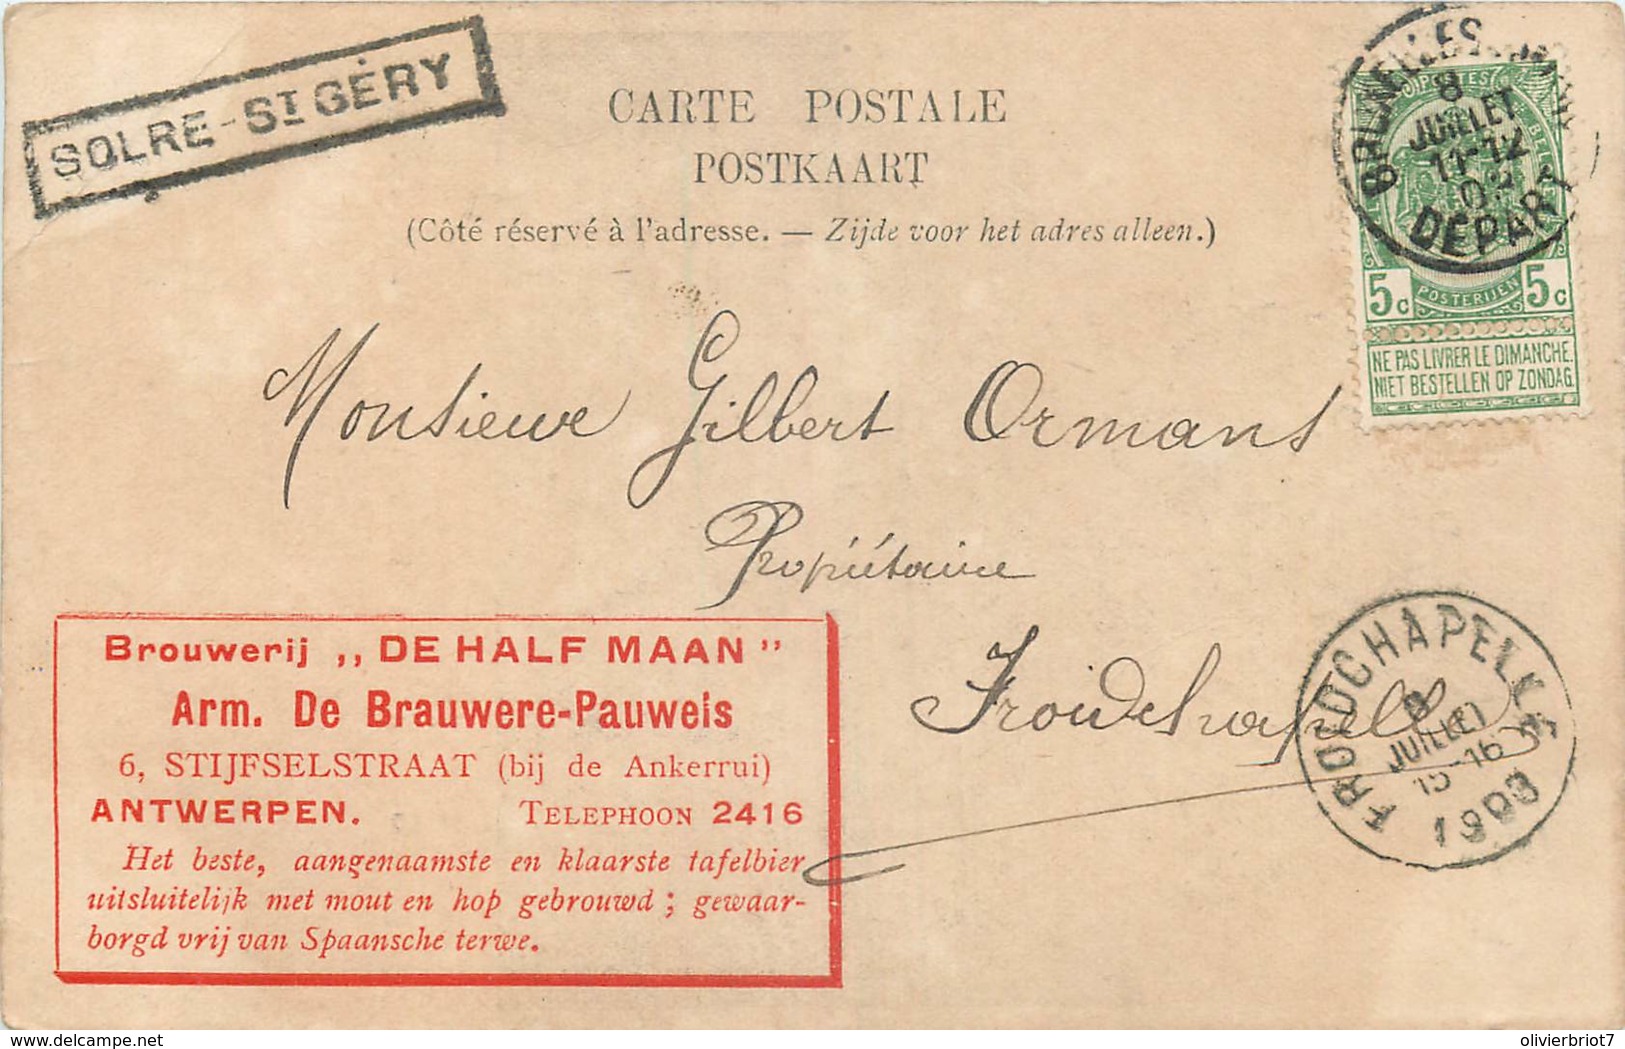 SOLRE-ST GÉRY
CARTE POSTALE
POSTKAART
(Côté réservé à l'adresse. — Zijde voor het adres alleen.)
8
JUILLET
11-12
DEPART
POSTES
5c POSTERIJEN 5c
NE PAS LIVRER LE DIMANCHE.
NIET BESTELLEN OP ZONDAG.
Monsieur Gilbert Ormans
Propiétaire
Froidchapelle
FROIDCHAPELLE
8
JUILLET
15-16
1903
Brouwerij „DE HALF MAAN”
Arm. De Brauwere-Pauwels
6, STIJFSELSTRAAT (bij de Ankerrui)
ANTWERPEN. TELEPHOON 2416
Het beste, aangenaamste en klaarste tafelbier
uitsluitelijk met mout en hop gebrouwd ; gewaar-
borgd vrij van Spaansche terwe.
delcampe.net
olivierbriot7